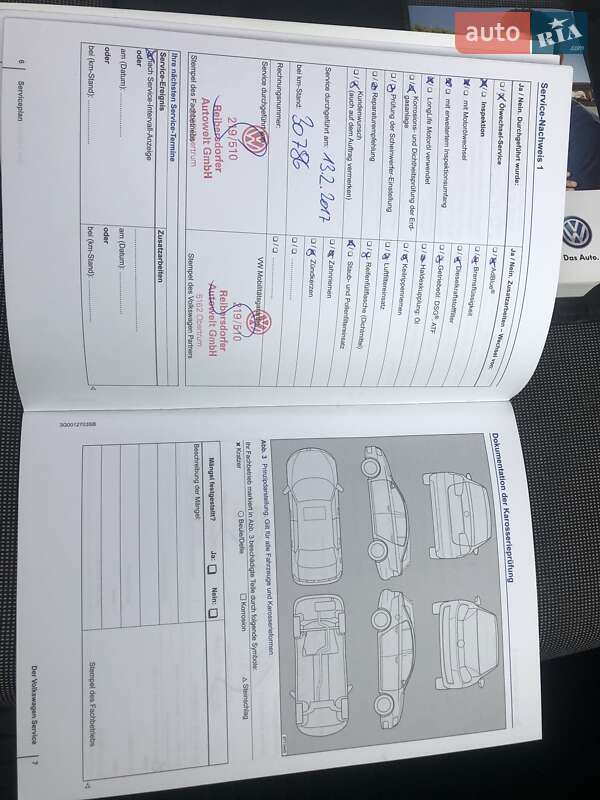 auto RIA.com
Das Auto.
Service-Nachweis 1
Ja / Nein, Durchgeführt wurde:
Ölwechsel-Service
Inspektion
mit Motorölwechsel
mit erweitertem Inspektionsumfang
LongLife Motoröl verwendet
Korrosions- und Dichtheitsprüfung der Erd-
gasanlage
Prüfung der Scheinwerfer-Einstellung
Reparaturempfehlung
Kundenwunsch
(auch auf dem Auftrag vermerken)
Service durchgeführt am: 13.2.2017
bei km-Stand: 30786
Rechnungsnummer:
Service durchgeführt
Reibersdorfer
219/510
Autowelt GmbH
Stempel des Fachbetriebs
Ihre nächsten Service-Termine
Service-Ereignis
nach Service-Intervall-Anzeige
oder
am (Datum):
oder
bei (km-Stand):
6 Serviceplan
Ja / Nein, Zusatzarbeiten – Wechsel von:
AdBlue®
Bremsflüssigkeit
Dieselkraftstofffilter
Getriebeöl: DSG®, ATF
Haldexkupplung: Öl
Keilrippenriemen
Luftfiltereinsatz
Reifenfüllflasche (Dichtmittel)
Staub- und Pollenfiltereinsatz
Zahnriemen
Zündkerzen
VW Mobilitätsgarantie
Reibersdorfer
219/510
Autowelt GmbH
5162 Obertrum
Stempel des Volkswagen Partners
Zusatzarbeiten
am (Datum):
oder
bei (km-Stand):
3G0012703SB
Dokumentation der Karosserieprüfung
Abb. 3 Prinzipdarstellung: Gilt für alle Fahrzeuge und Karosserieformen.
Ihr Fachbetrieb markiert in Abb. 3 beschädigte Teile durch folgende Symbole:
x Kratzer
Beule/Delle
Korrosion
Steinschlag
Mängel festgestellt?
Ja:
Nein:
Beschreibung der Mängel:
Stempel des Fachbetriebs
Der Volkswagen Service 7